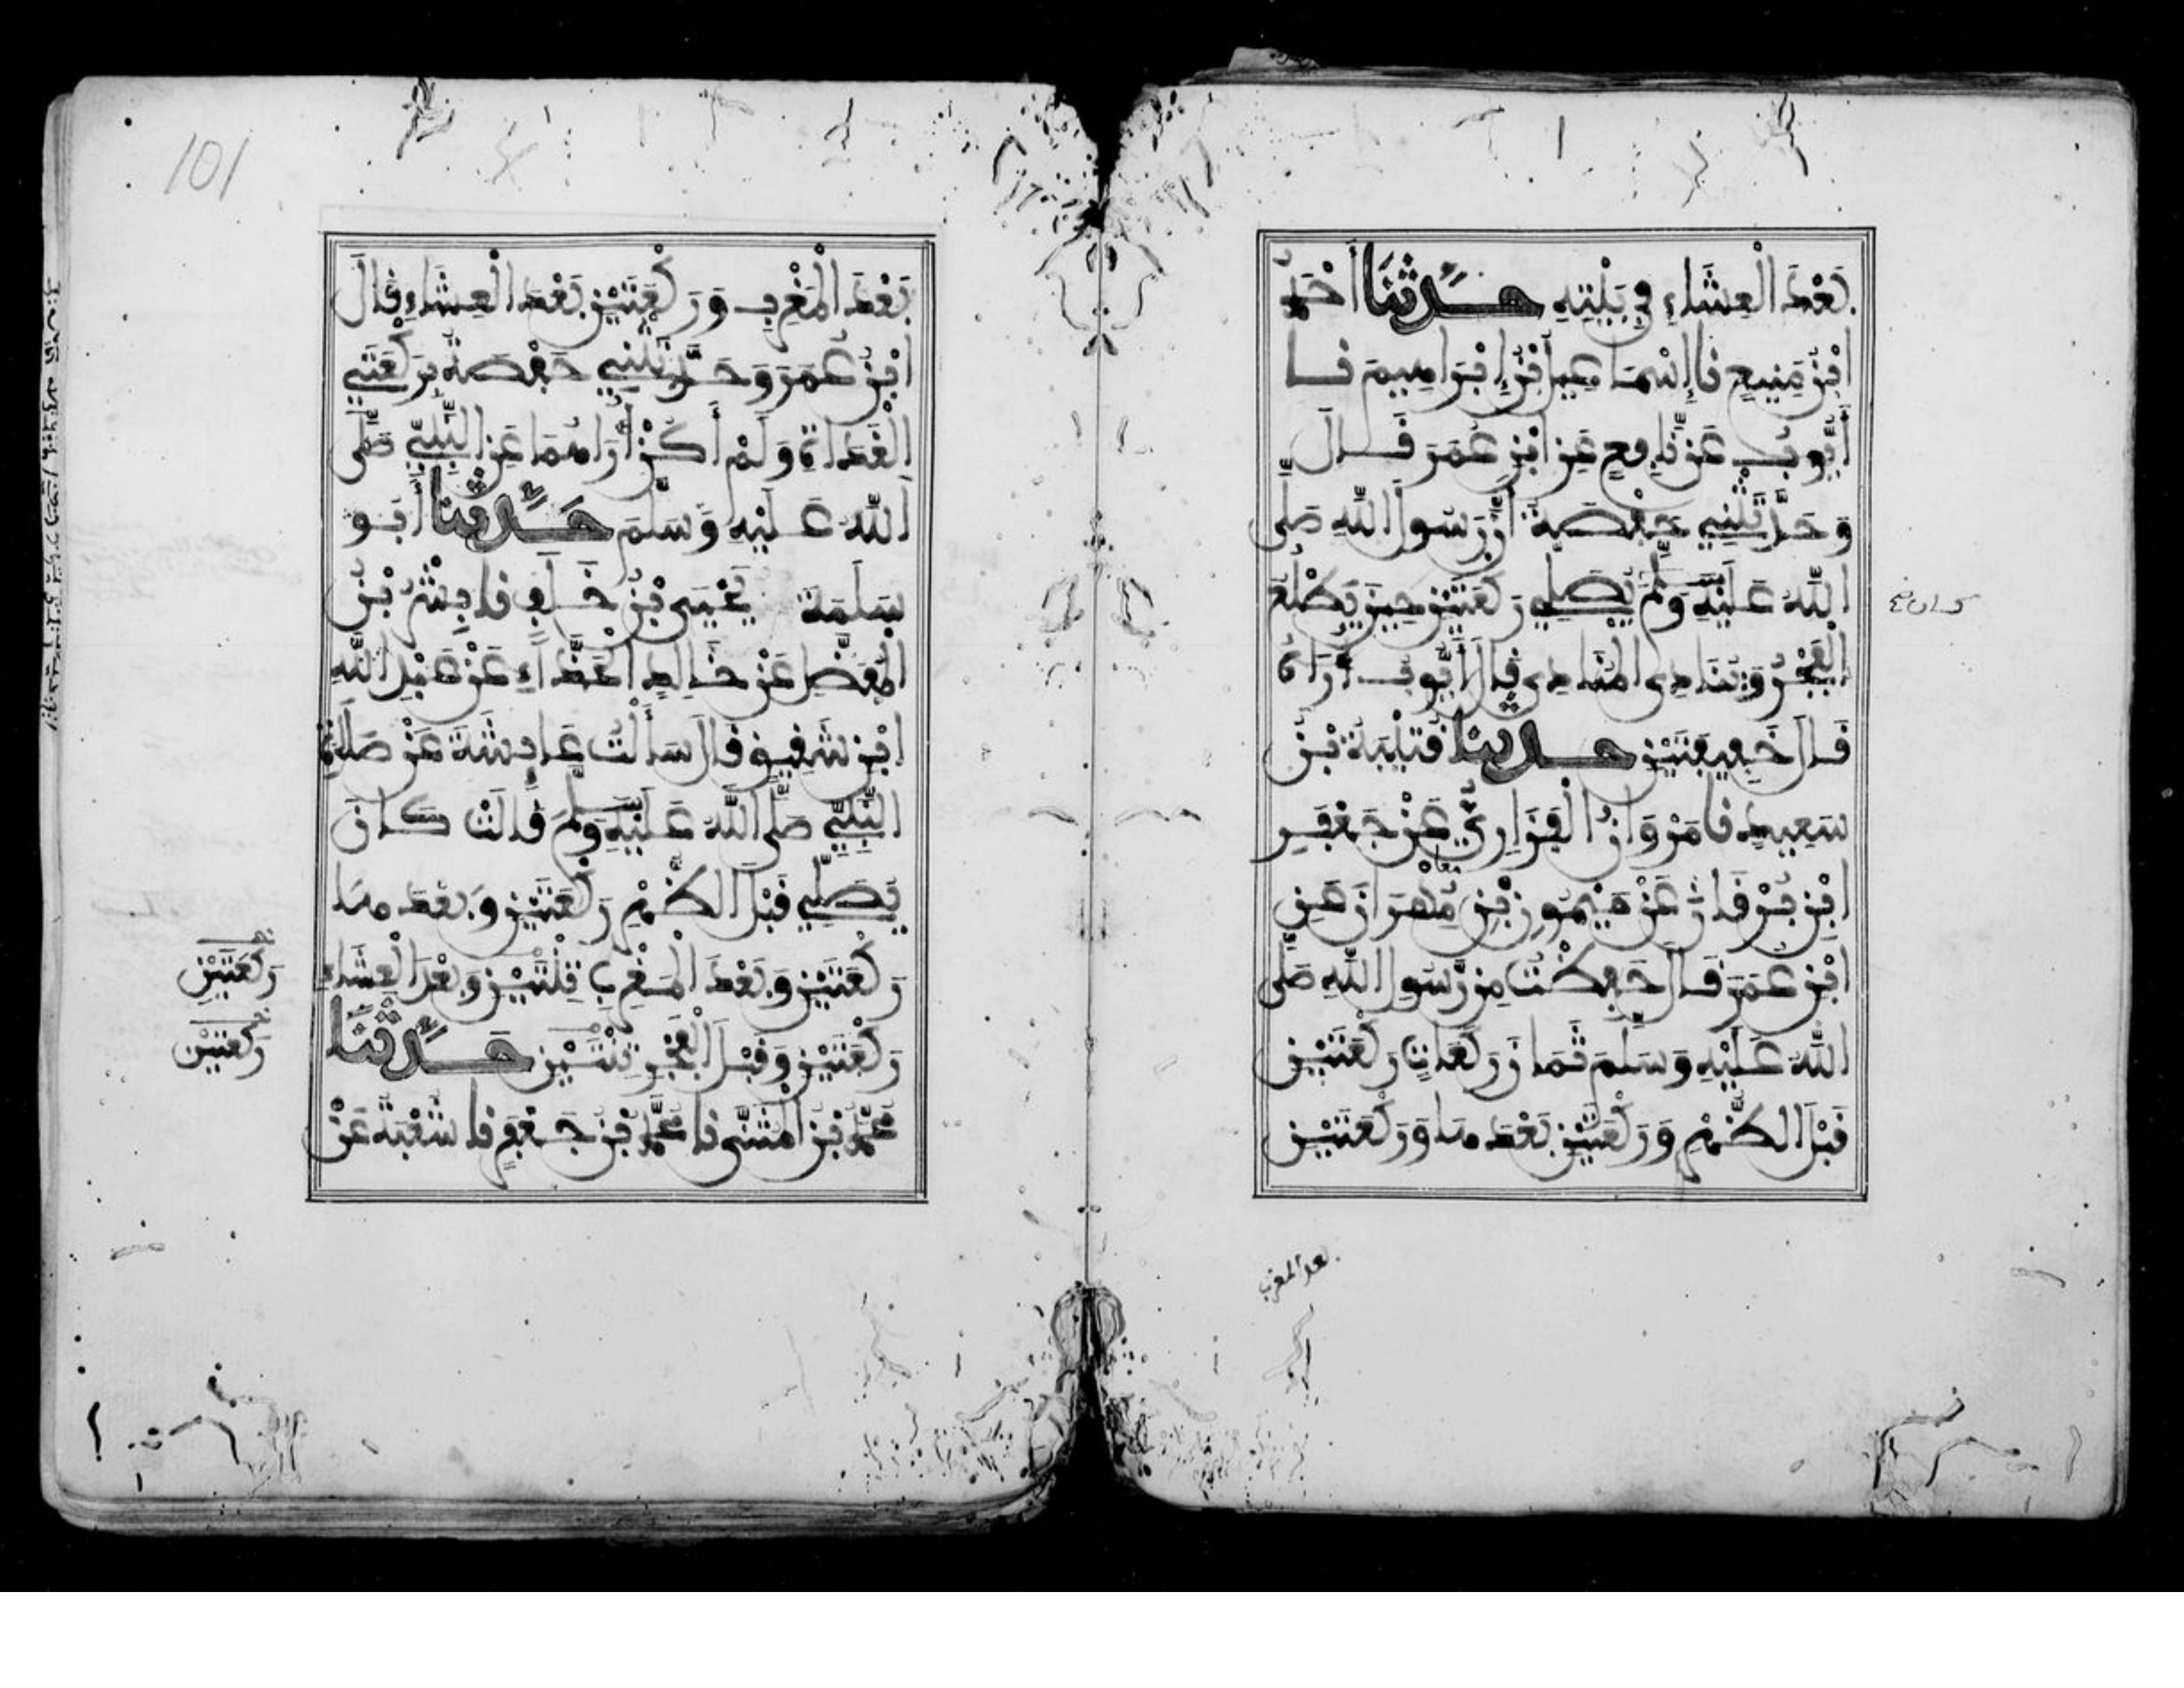 بَعْدَ الْعِشَاءِ فِي بَيْتِهِ حَدَّثَنَا أَحْمَدُ
ابْنُ مَنِيعٍ نا إِسْمَاعِيلُ بْنُ إِبْرَاهِيمَ نا
أَيُّوبُ عَنْ نَافِعٍ عَنِ ابْنِ عُمَرَ قَالَ
وَحَدَّثَتْنِي حَفْصَةُ أَنَّ رَسُولَ اللهِ صَلَّى
اللهُ عَلَيْهِ وَسَلَّمَ يُصَلِّي رَكْعَتَيْنِ حِينَ يَطْلُعُ
كان صح
الْفَجْرُ وَيُنَادِي الْمُنَادِي قَالَ أَيُّوبُ أُرَاهُ
قَالَ خَفِيفَتَيْنِ حَدَّثَنَا قُتَيْبَةُ بْنُ
سَعِيدٍ نا مَرْوَانُ الْفَزَارِيُّ عَنْ جَعْفَرِ
ابْنِ بُرْقَانَ عَنْ مَيْمُونِ بْنِ مِهْرَانَ عَنِ
معا
ابْنِ عُمَرَ قَالَ حَفِظْتُ مِنْ رَسُولِ اللهِ صَلَّى
اللهُ عَلَيْهِ وَسَلَّمَ ثَمَانَ رَكَعَاتٍ رَكْعَتَيْنِ
قَبْلَ الظُّهْرِ وَرَكْعَتَيْنِ بَعْدَهَا وَرَكْعَتَيْنِ
بعد المغرب
101
بَعْدَ الْمَغْرِبِ وَرَكْعَتَيْنِ بَعْدَ الْعِشَاءِ قَالَ
ابْنُ عُمَرَ وَحَدَّثَتْنِي حَفْصَةُ بِرَكْعَتَيِ
الْغَدَاةِ وَلَمْ أَكُنْ أَرَاهُمَا عَنِ النَّبِيِّ صَلَّى
اللهُ عَلَيْهِ وَسَلَّمَ حَدَّثَنَا أَبُو
سَلَمَةَ يَحْيَى بْنُ خَلَفٍ نا بِشْرُ بْنُ
الْمُفَضَّلِ عَنْ خَالِدٍ الْحَذَّاءِ عَنْ عَبْدِ اللهِ
ابْنِ شَقِيقٍ قَالَ سَأَلْتُ عَائِشَةَ عَنْ صَلَاةِ
النَّبِيِّ صَلَّى اللهُ عَلَيْهِ وَسَلَّمَ قَالَتْ كَانَ
يُصَلِّي قَبْلَ الظُّهْرِ رَكْعَتَيْنِ وَبَعْدَهَا
رَكْعَتَيْنِ وَبَعْدَ الْمَغْرِبِ ثِنْتَيْنِ وَبَعْدَ الْعِشَاءِ
رَكْعَتَيْنِ
رَكْعَتَيْنِ وَقَبْلَ الْفَجْرِ ثِنْتَيْنِ حَدَّثَنَا
رَكْعَتَيْنِ
مُحَمَّدُ بْنُ الْمُثَنَّى نا مُحَمَّدُ بْنُ جَعْفَرٍ نا شُعْبَةُ عَنْ